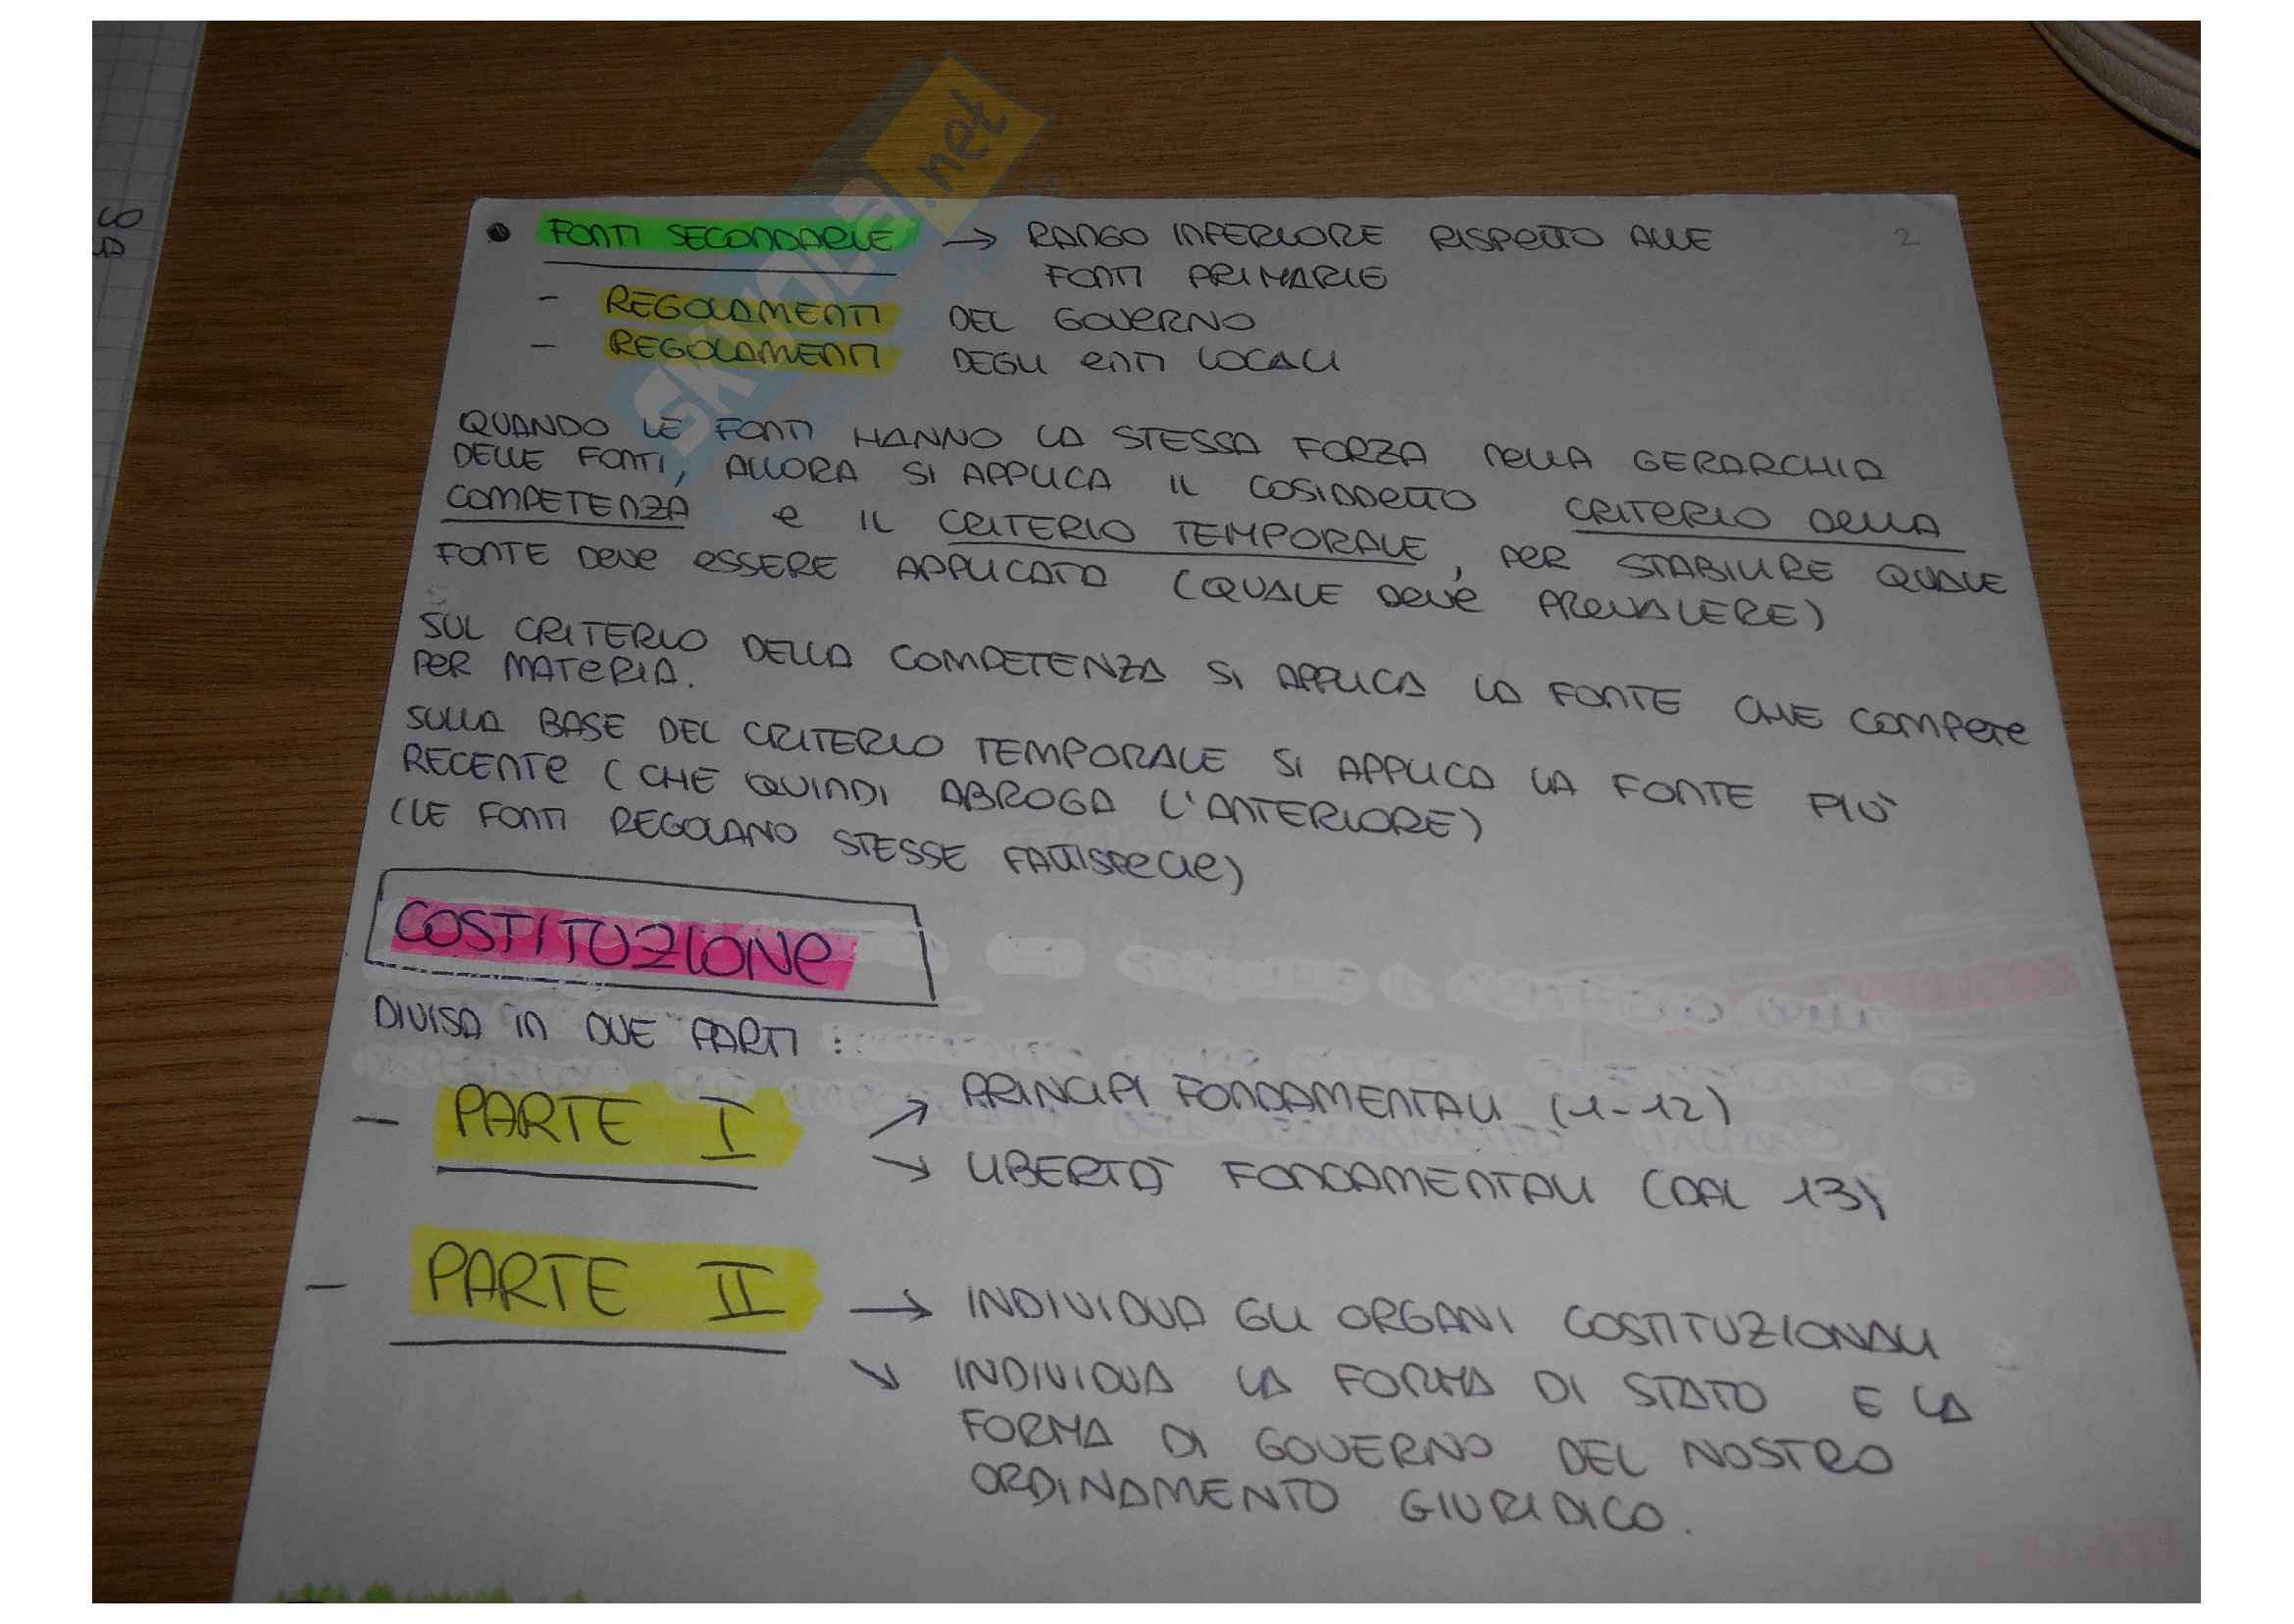 SKUOLA.net
2
• FONTI SECONDARIE → RANGO INFERIORE RISPETTO ALLE
FONTI PRIMARIE
- REGOLAMENTI DEL GOVERNO
- REGOLAMENTI DEGLI ENTI LOCALI
QUANDO LE FONTI HANNO LA STESSA FORZA NELLA GERARCHIA
DELLE FONTI, ALLORA SI APPLICA IL COSIDDETTO CRITERIO DELLA
COMPETENZA e IL CRITERIO TEMPORALE, PER STABILIRE QUALE
FONTE DEVE ESSERE APPLICATA (QUALE DEVE PREVALERE)
SUL CRITERIO DELLA COMPETENZA SI APPLICA LA FONTE CHE COMPETE
PER MATERIA.
SULLA BASE DEL CRITERIO TEMPORALE SI APPLICA LA FONTE PIÙ
RECENTE (CHE QUINDI ABROGA L'ANTERIORE)
(LE FONTI REGOLANO STESSE FATTISPECIE)
COSTITUZIONE
DIVISA IN DUE PARTI:
- PARTE I ↗ PRINCIPI FONDAMENTALI (1-12)
↘ LIBERTÀ FONDAMENTALI (DAL 13)
- PARTE II → INDIVIDUA GLI ORGANI COSTITUZIONALI
↘ INDIVIDUA LA FORMA DI STATO E LA
FORMA DI GOVERNO DEL NOSTRO
ORDINAMENTO GIURIDICO.